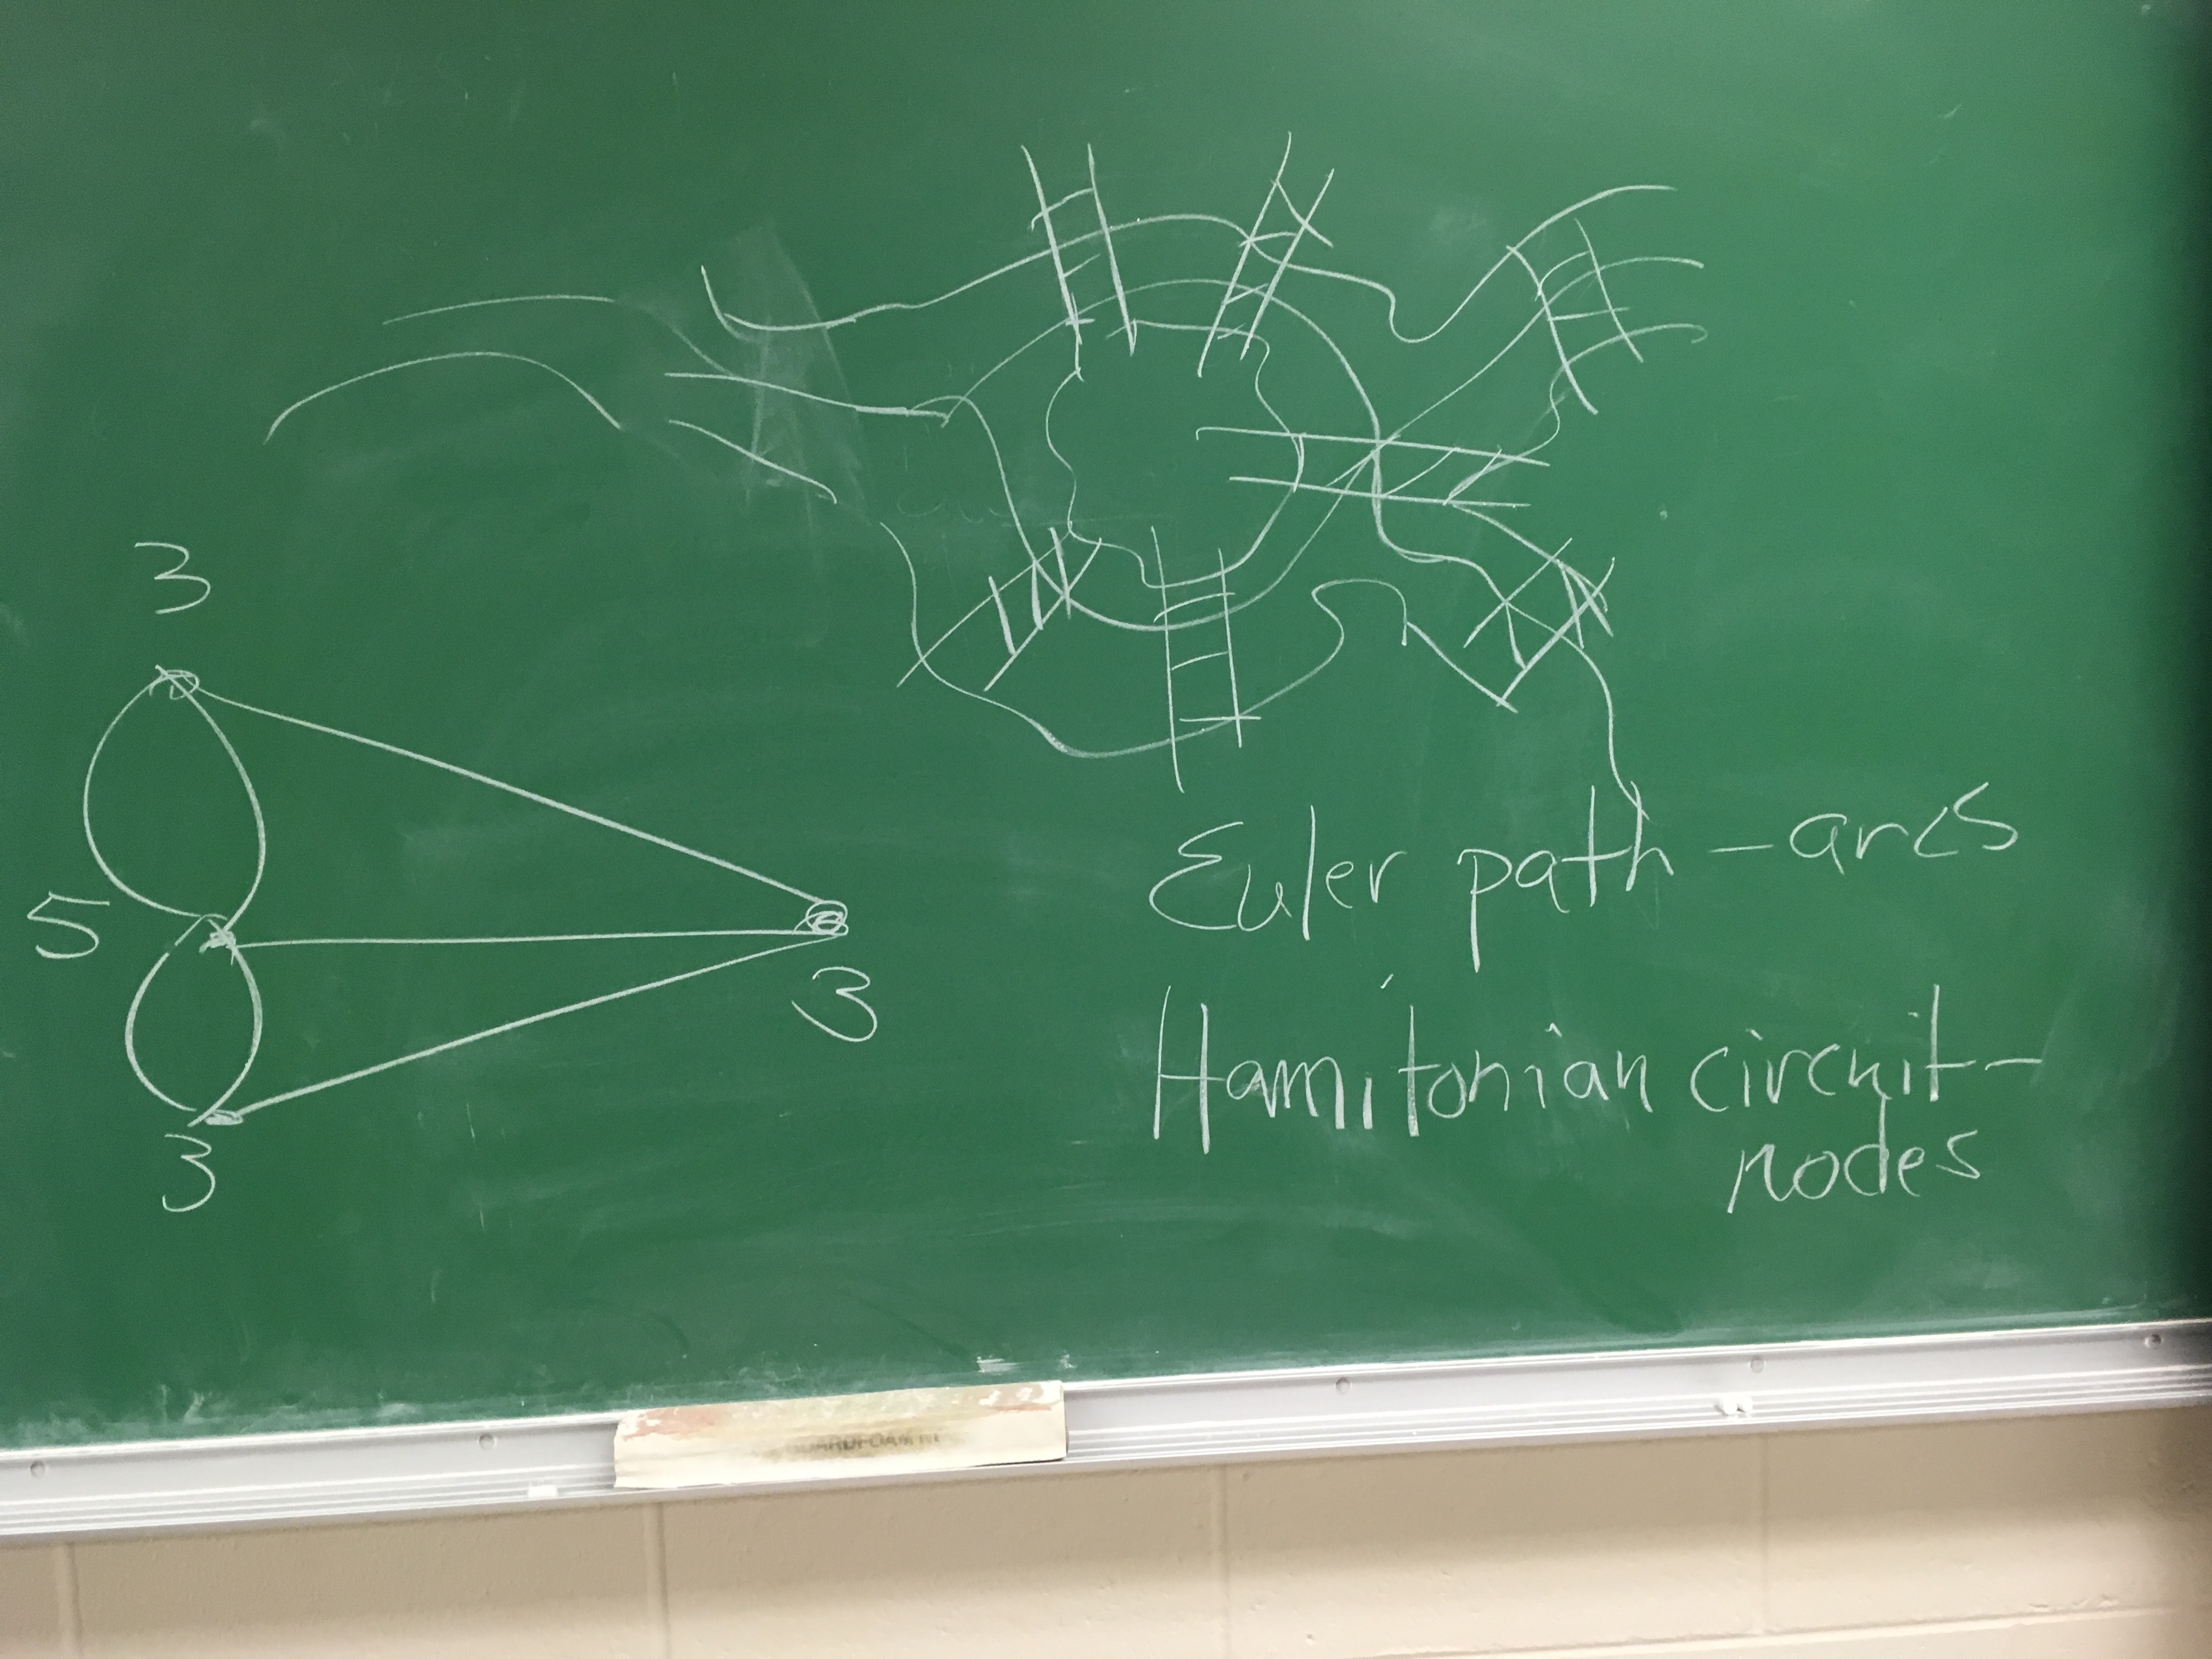 3
5
3
3
Euler path - arcs
Hamitonian circuit -
nodes